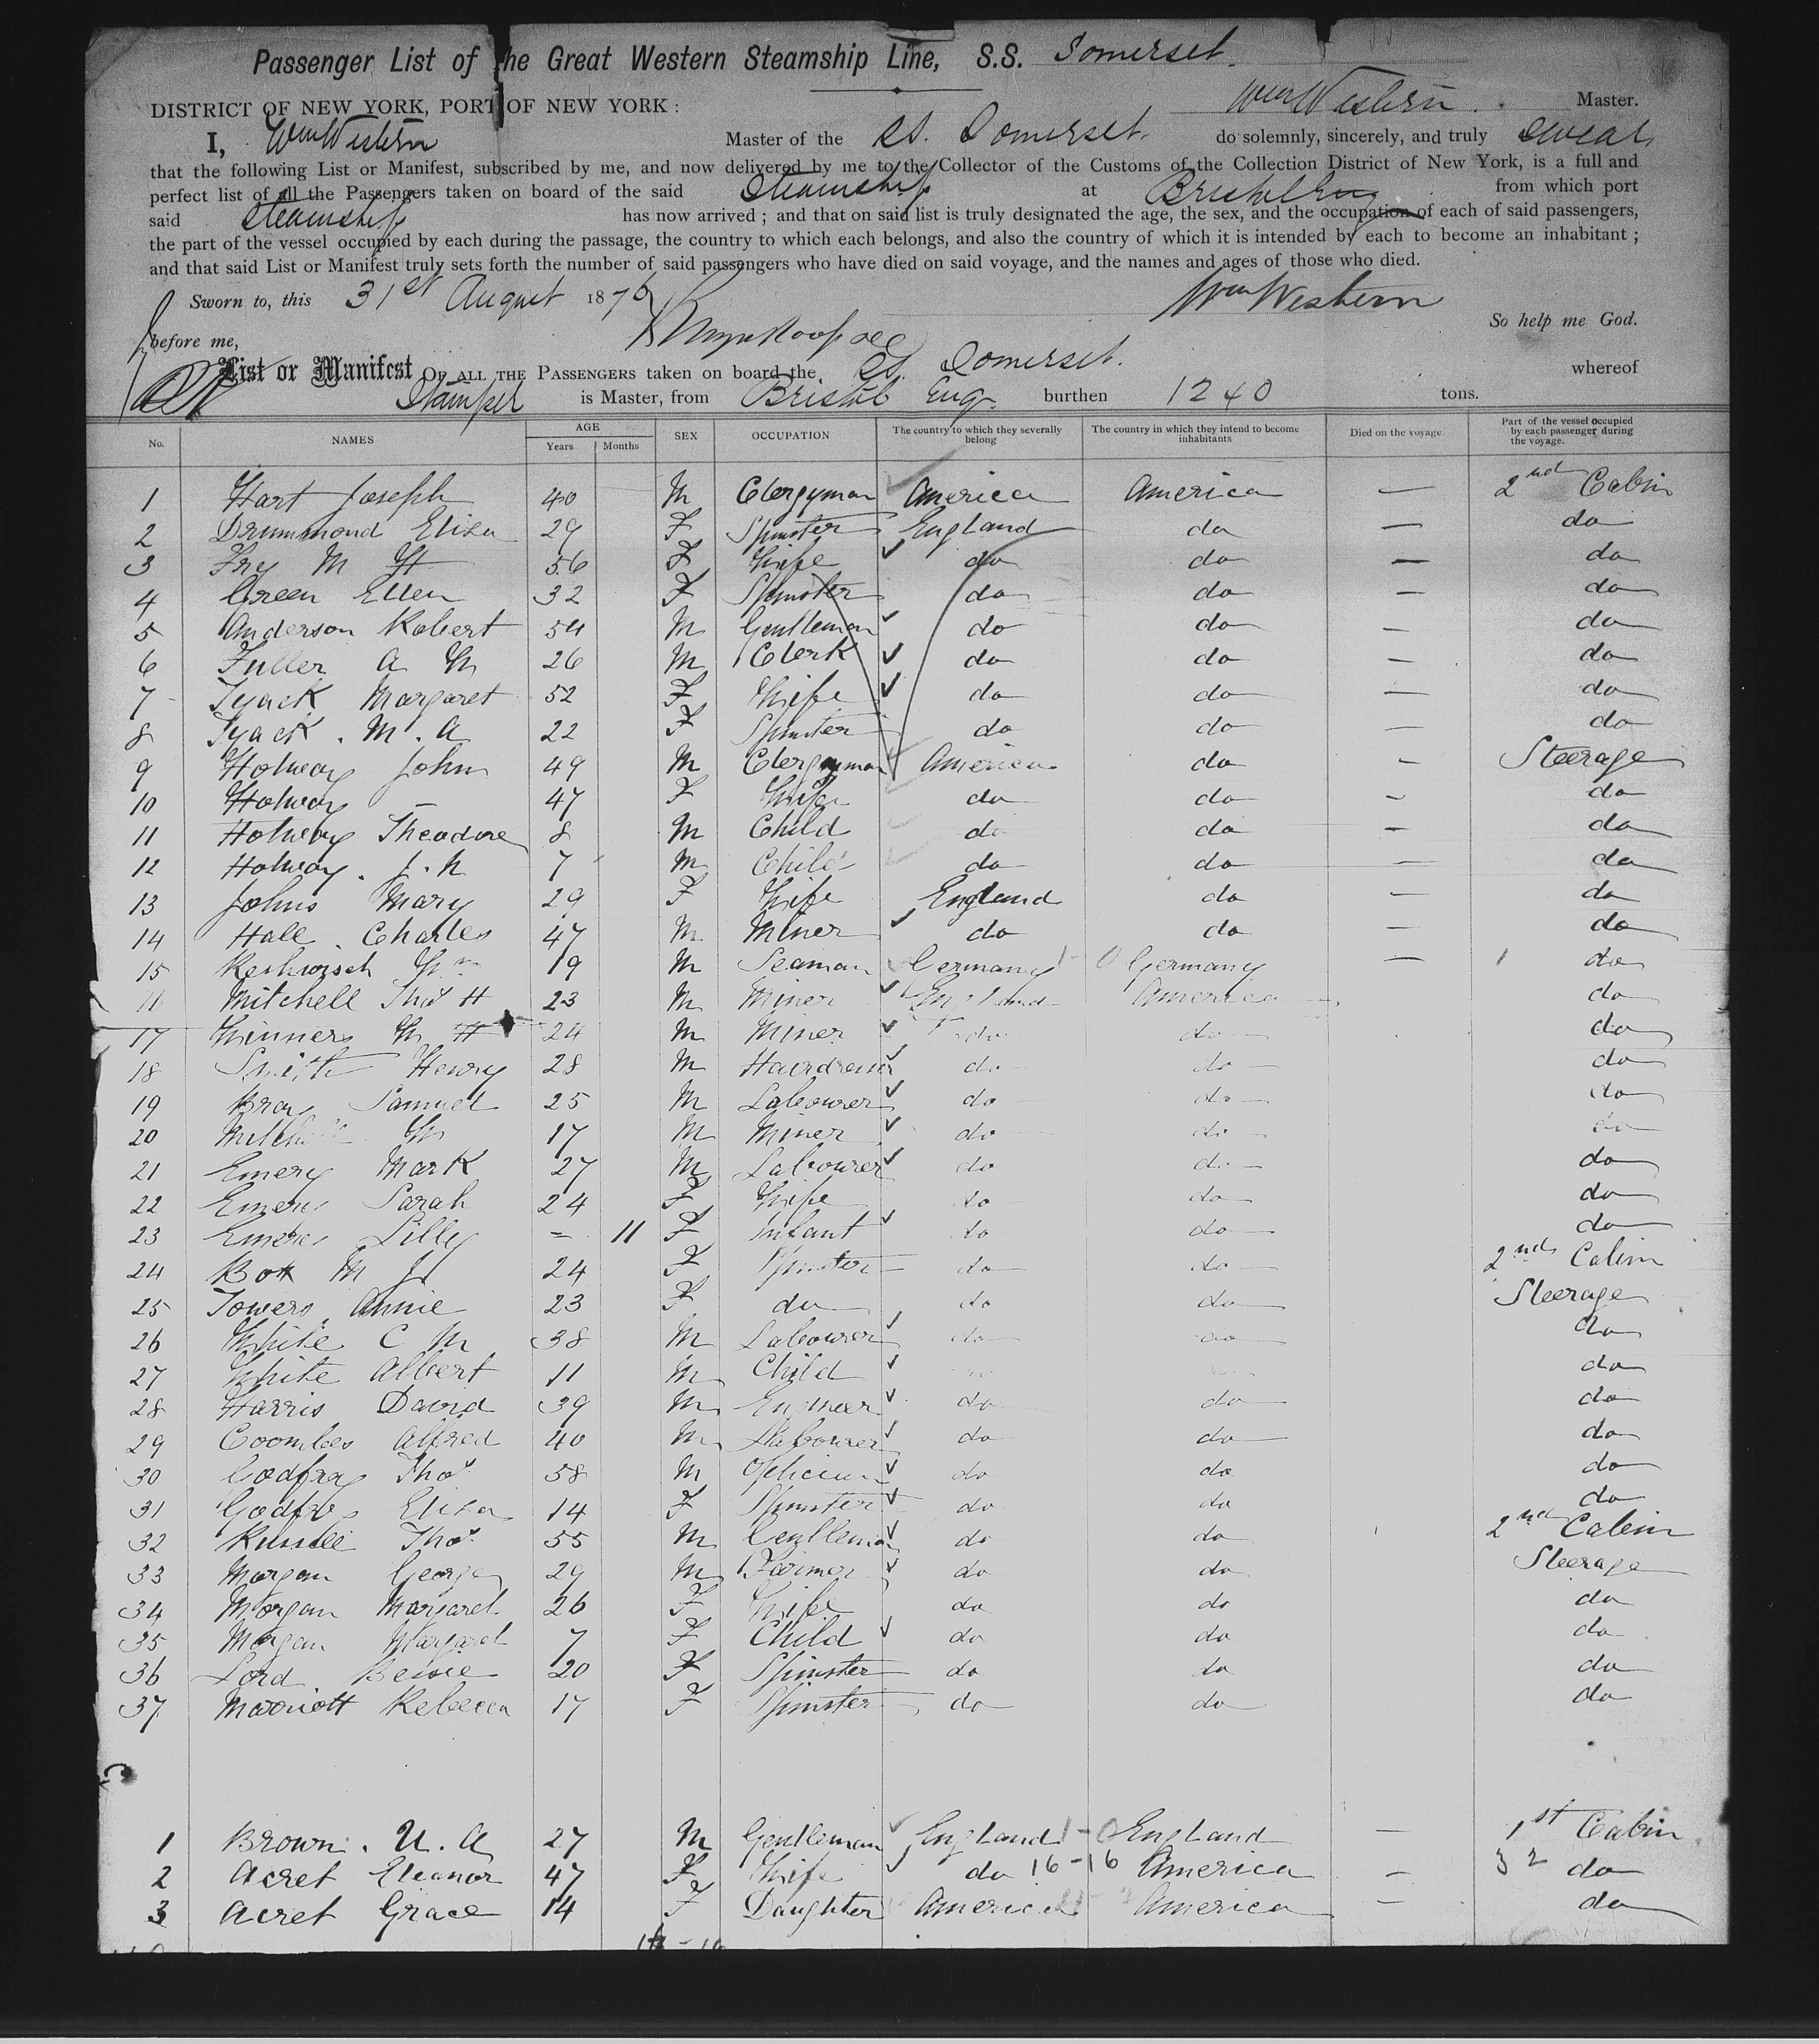 Passenger List of the Great Western Steamship Line, S.S. Somerset.
DISTRICT OF NEW YORK, PORT OF NEW YORK: Wm Western. Master.
I, Wm Western Master of the SS. Somerset. do solemnly, sincerely, and truly swear
that the following List or Manifest, subscribed by me, and now delivered by me to the Collector of the Customs of the Collection District of New York, is a full and
perfect list of all the Passengers taken on board of the said Steamship at Bristol Eng from which port
said Steamship has now arrived; and that on said list is truly designated the age, the sex, and the occupation of each of said passengers,
the part of the vessel occupied by each during the passage, the country to which each belongs, and also the country of which it is intended by each to become an inhabitant;
and that said List or Manifest truly sets forth the number of said passengers who have died on said voyage, and the names and ages of those who died.
Sworn to, this 31st August 1876 Wm Western
So help me God.
before me,
List or Manifest OF ALL THE PASSENGERS taken on board the SS. Somerset. whereof
is Master, from Bristol Eng. burthen 1240 tons.
No. NAMES AGE Years Months SEX OCCUPATION The country to which they severally belong The country in which they intend to become inhabitants Died on the voyage Part of the vessel occupied by each passenger during the voyage.
1 Hart Joseph 40 M Clergyman America America — 2nd Cabin
2 Drummond Eliza 29 F Spinster England do — do
3 Fry M H 56 F Wife do do — do
4 Green Ellen 32 F Spinster do do — do
5 Anderson Robert 54 M Gentleman do do — do
6 Fuller A W 26 M Clerk do do — do
7 Tyack Margaret 52 F Wife do do — do
8 Tyack. M. A 22 F Spinster do do — do
9 Holway John 49 M Clergyman America do — Steerage
10 Holway — 47 F Wife do do — do
11 Holway Theodore 8 M Child do do — do
12 Holway. J. N 7 M Child do do — do
13 Johns Mary 29 F Wife England do — do
14 Hall. Charles 47 M Miner do do — do
15 Wm 19 M Seaman Germany Germany — do
16 Mitchell Thos H 23 M Miner England America do
17 Winners W H 24 M Miner do do do
18 Smith Henry 28 M Hairdresser do do do
19 Bray Samuel 25 M Labourer do do do
20 Mitchell Wm 17 M Miner do do do
21 Emery Mark 27 M Labourer do do do
22 Emery Sarah 24 F Wife do do do
23 Emery Lilly — 11 F Infant do do do
24 Box M J 24 F Spinster do do 2nd Cabin
25 Towers Annie 23 F do do do Steerage
26 White C W 38 M Labourer do do do
27 White Albert 11 M Child do
28 Harris David 39 M Engineer do do do
29 Coombes Alfred 40 M Labourer do do do
30 Godfray Thos 58 M Optician do do do
31 Godfray Eliza 14 F Spinster do do do
32 Russell Thos 55 M Gentleman do do 2nd Cabin
33 Morgan George 29 M Farmer do do Steerage
34 Morgan Margaret 26 F Wife do do do
35 Morgan Margaret 7 F Child do do do
36 Lord Bessie 20 F Spinster do do do
37 Marriott Rebecca 17 F Spinster do do do
1 Brown. U. A 27 M Gentleman England 1-0 England — 1st Cabin
2 Acret Eleanor 47 F Wife do 16-16 America — do
3 Acret Grace 14 F Daughter America America — do